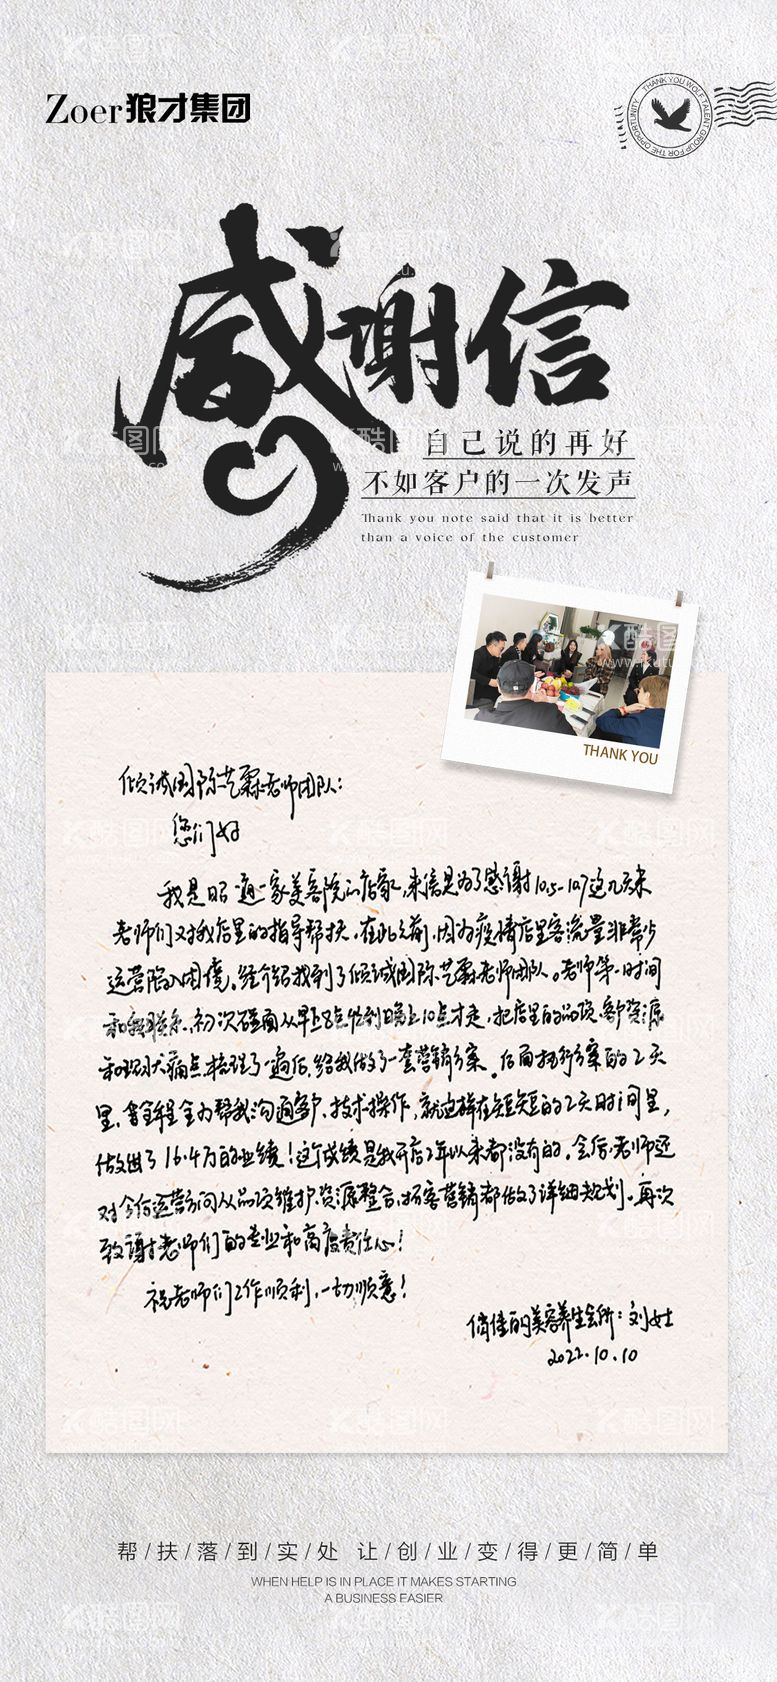 Zoer狼才集团
THANK YOU WOLF TALENT GROUP FOR THE OPPORTUNITY
感谢信
自己说的再好
不如客户的一次发声
Thank you note said that it is better
than a voice of the customer
THANK YOU
倾诚国际艺霖老师团队:
您们好
我是昭通一家美容院的店家,来信是为了感谢10.5-10.7这几天来
老师们对我店里的指导帮扶,在此之前,因为疫情店里客流量非常少
运营陷入困境。经介绍找到了倾诚国际艺霖老师团队。老师第一时间
和我联系,初次碰面从早上8点忙到晚上10点才走,把店里的品项、客户资源
和现状痛点梳理了一遍后,给我做了一套营销方案。后面执行方案的2天
里,全程全力帮我沟通客户、技术操作,就这样在短短的2天时间里,
做出了16.4万的业绩!这个成绩是我开店2年以来都没有的。会后,老师还
对今后运营方向从品项维护、资源整合、拓客营销都做了详细规划。再次
致谢老师们的专业和高度责任心!
祝老师们工作顺利,一切顺意!
俏佳的美容养生会所:刘女士
2022.10.10
帮/扶/落/到/实/处 让/创/业/变/得/更/简/单
WHEN HELP IS IN PLACE IT MAKES STARTING
A BUSINESS EASIER